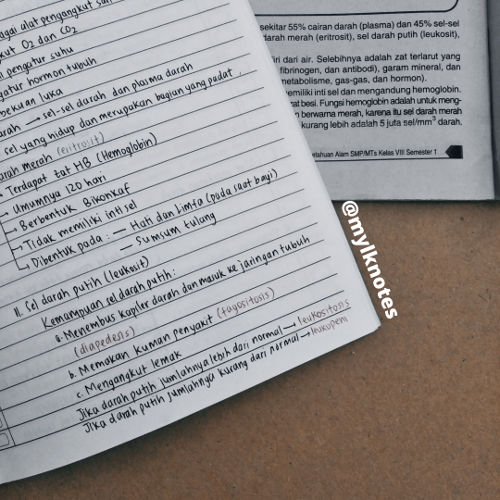 alat pengangkut sari
O2 dan CO2
pengatur suhu
hormon tubuh
luka
→ sel-sel darah dan plasma darah
sel yang hidup dan merupakan bagian yang padat.
merah (eritrosit)
Terdapat zat HB (Hemoglobin)
Umumnya 120 hari
Berbentuk Bikonkaf
Tidak memiliki inti sel
Dibentuk pada : — Hati dan Limfa (pada saat bayi)
— Sumsum tulang
II. Sel darah putih (leukosit)
Kemampuan sel darah putih:
a. Menembus kapiler darah dan masuk ke jaringan tubuh
(diapedesis)
b. Memakan kuman penyakit (fagositosis)
c. Mengangkut lemak
Jika darah putih jumlahnya lebih dari normal → leukositosis
Jika darah putih jumlahnya kurang dari normal → leukopeni
sekitar 55% cairan darah (plasma) dan 45% sel-sel
darah merah (eritrosit), sel darah putih (leukosit),
dari air. Selebihnya adalah zat terlarut yang
fibrinogen, dan antibodi), garam mineral, dan
metabolisme, gas-gas, dan hormon).
memiliki inti sel dan mengandung hemoglobin.
zat besi. Fungsi hemoglobin adalah untuk meng-
berwarna merah, karena itu sel darah merah
kurang lebih adalah 5 juta sel/mm³ darah.
Alam SMP/MTs Kelas VIII Semester 1
@mylknotes